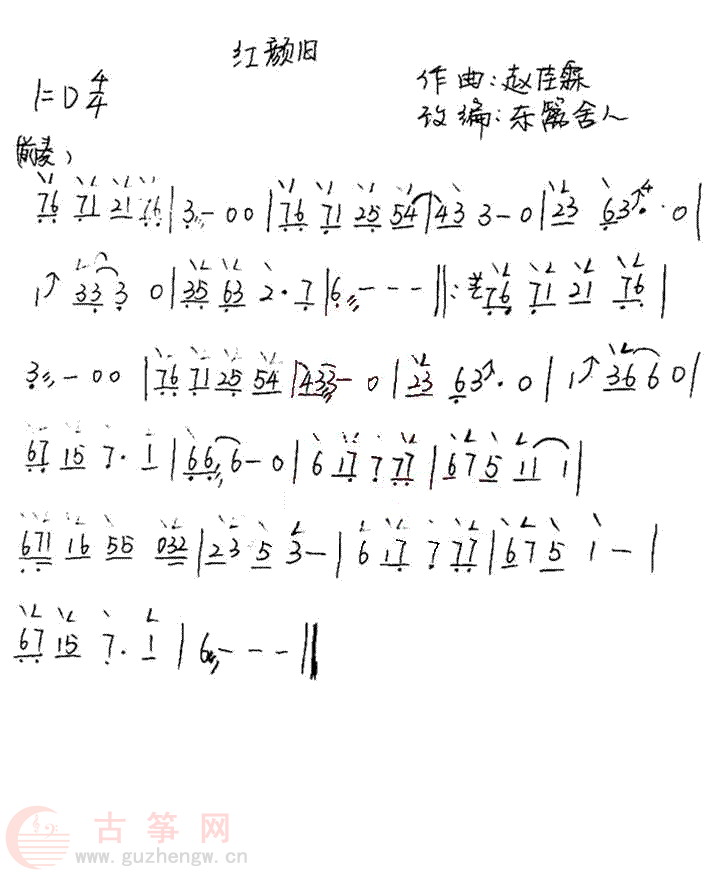 红颜旧
作曲:赵佳霖
1=D 4/4
改编:东篱舍人
前奏
76 71 21 76 | 3 - 0 0 | 76 71 25 54 | 43 3 - 0 | 23 63 · 0 |
1 33 3 0 | 35 63 2 · 7 | 6 - - - ‖: 76 71 21 76 |
3 - 0 0 | 76 71 25 54 | 433 - 0 | 23 63 · 0 | 1 36 6 0 |
67 15 7 · 1 | 66 6 - 0 | 6 17 7 77 | 67 5 11 1 |
671 16 55 032 | 23 5 3 - | 6 17 7 77 | 67 5 1 - |
67 15 7 · 1 | 6 - - - ‖
古筝网
www.guzhengw.cn